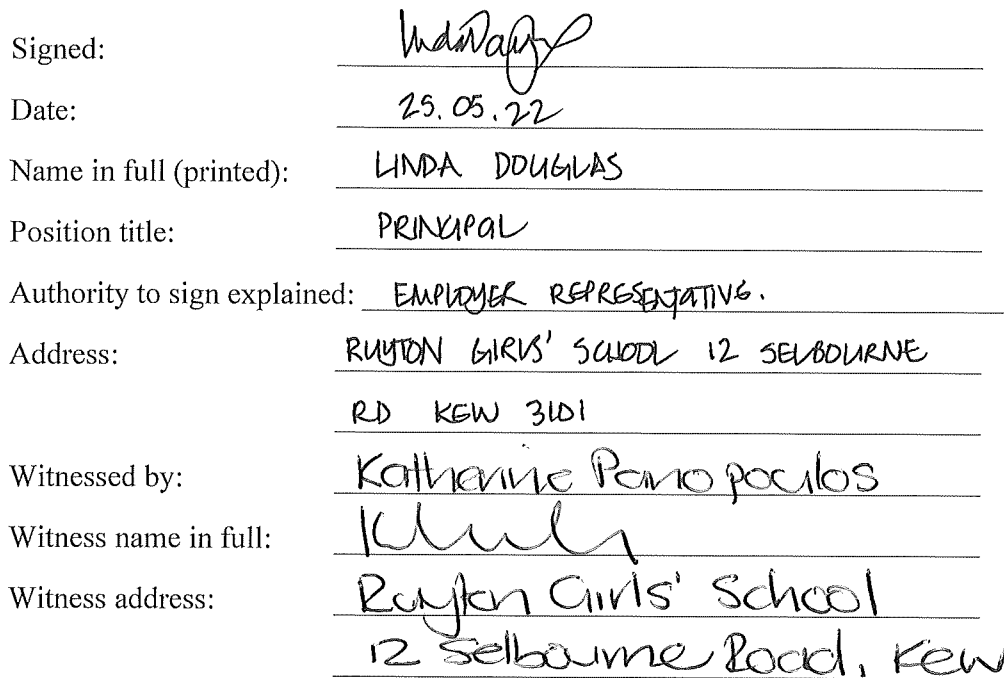 Signed:
Date: 25.05.22
Name in full (printed): LINDA DOUGLAS
Position title: PRINCIPAL
Authority to sign explained: EMPLOYER REPRESENTATIVE.
Address: RUYTON GIRLS' SCHOOL 12 SELBOURNE
RD KEW 3101
Witnessed by: Katherine Panopoulos
Witness name in full:
Witness address: Ruyton Girls' School
12 Selbourne Road, Kew